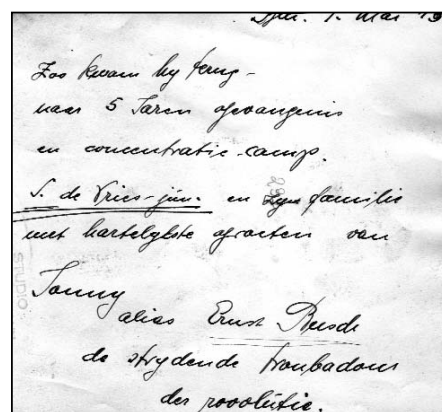 1. Mai 19
Zoo kwam hy terug -
naar 5 Jaren gevangenis
en concentratie-camp.
S. de Vries-jun. en zyn familie
met hartelykste groeten van
Jonny
alias Ernst Busch
de strydende troubadour
der revolutie.
STUDIO